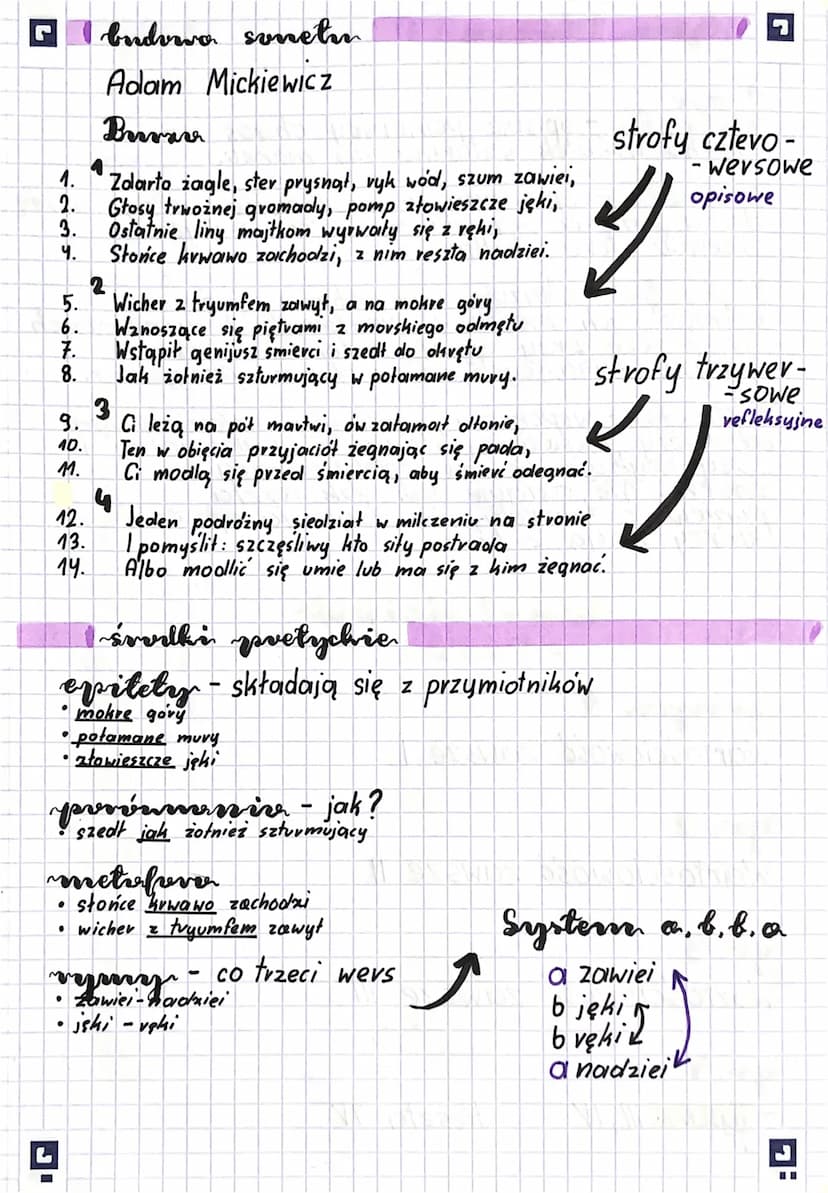 budowa sonetu
Adam Mickiewicz
Burza
strofy cztero-
-wersowe
opisowe
1
1. Zdarto żagle, ster prysnął, ryk wód, szum zawiei,
2. Głosy trwożnej gromady, pomp złowieszcze jęki,
3. Ostatnie liny majtkom wyrwały się z ręki,
4. Słońce krwawo zachodzi, z nim reszta nadziei.
2
5. Wicher z tryumfem zawył, a na mokre góry
6. Wznoszące się piętrami z morskiego odmętu
7. Wstąpił genijusz śmierci i szedł do okrętu
8. Jak żołnież szturmujący w połamane mury.
strofy trzywer-
-sowe
refleksyjne
3
9. Ci leżą na pół martwi, ów załamał dłonie,
10. Ten w obięcia przyjaciół żegnając się pada,
11. Ci modlą się przed śmiercią, aby śmierć odegnać.
4
12. Jeden podróżny siedział w milczeniu na stronie
13. I pomyślił: szczęśliwy kto siły postrada
14. Albo modlić się umie lub ma się z kim żegnać.
środki poetyckie
epitety - składają się z przymiotników
• mokre góry
• połamane mury
• złowieszcze jęki
porównania - jak?
• szedł jak żołnież szturmujący
metafora
• słońce krwawo zachodzi
• wicher z tryumfem zawył
rymy - co trzeci wers
• zawiei-nadziei
• jęki - ręki
System a, b, b, a
a zawiei
b jęki
b ręki
a nadziei